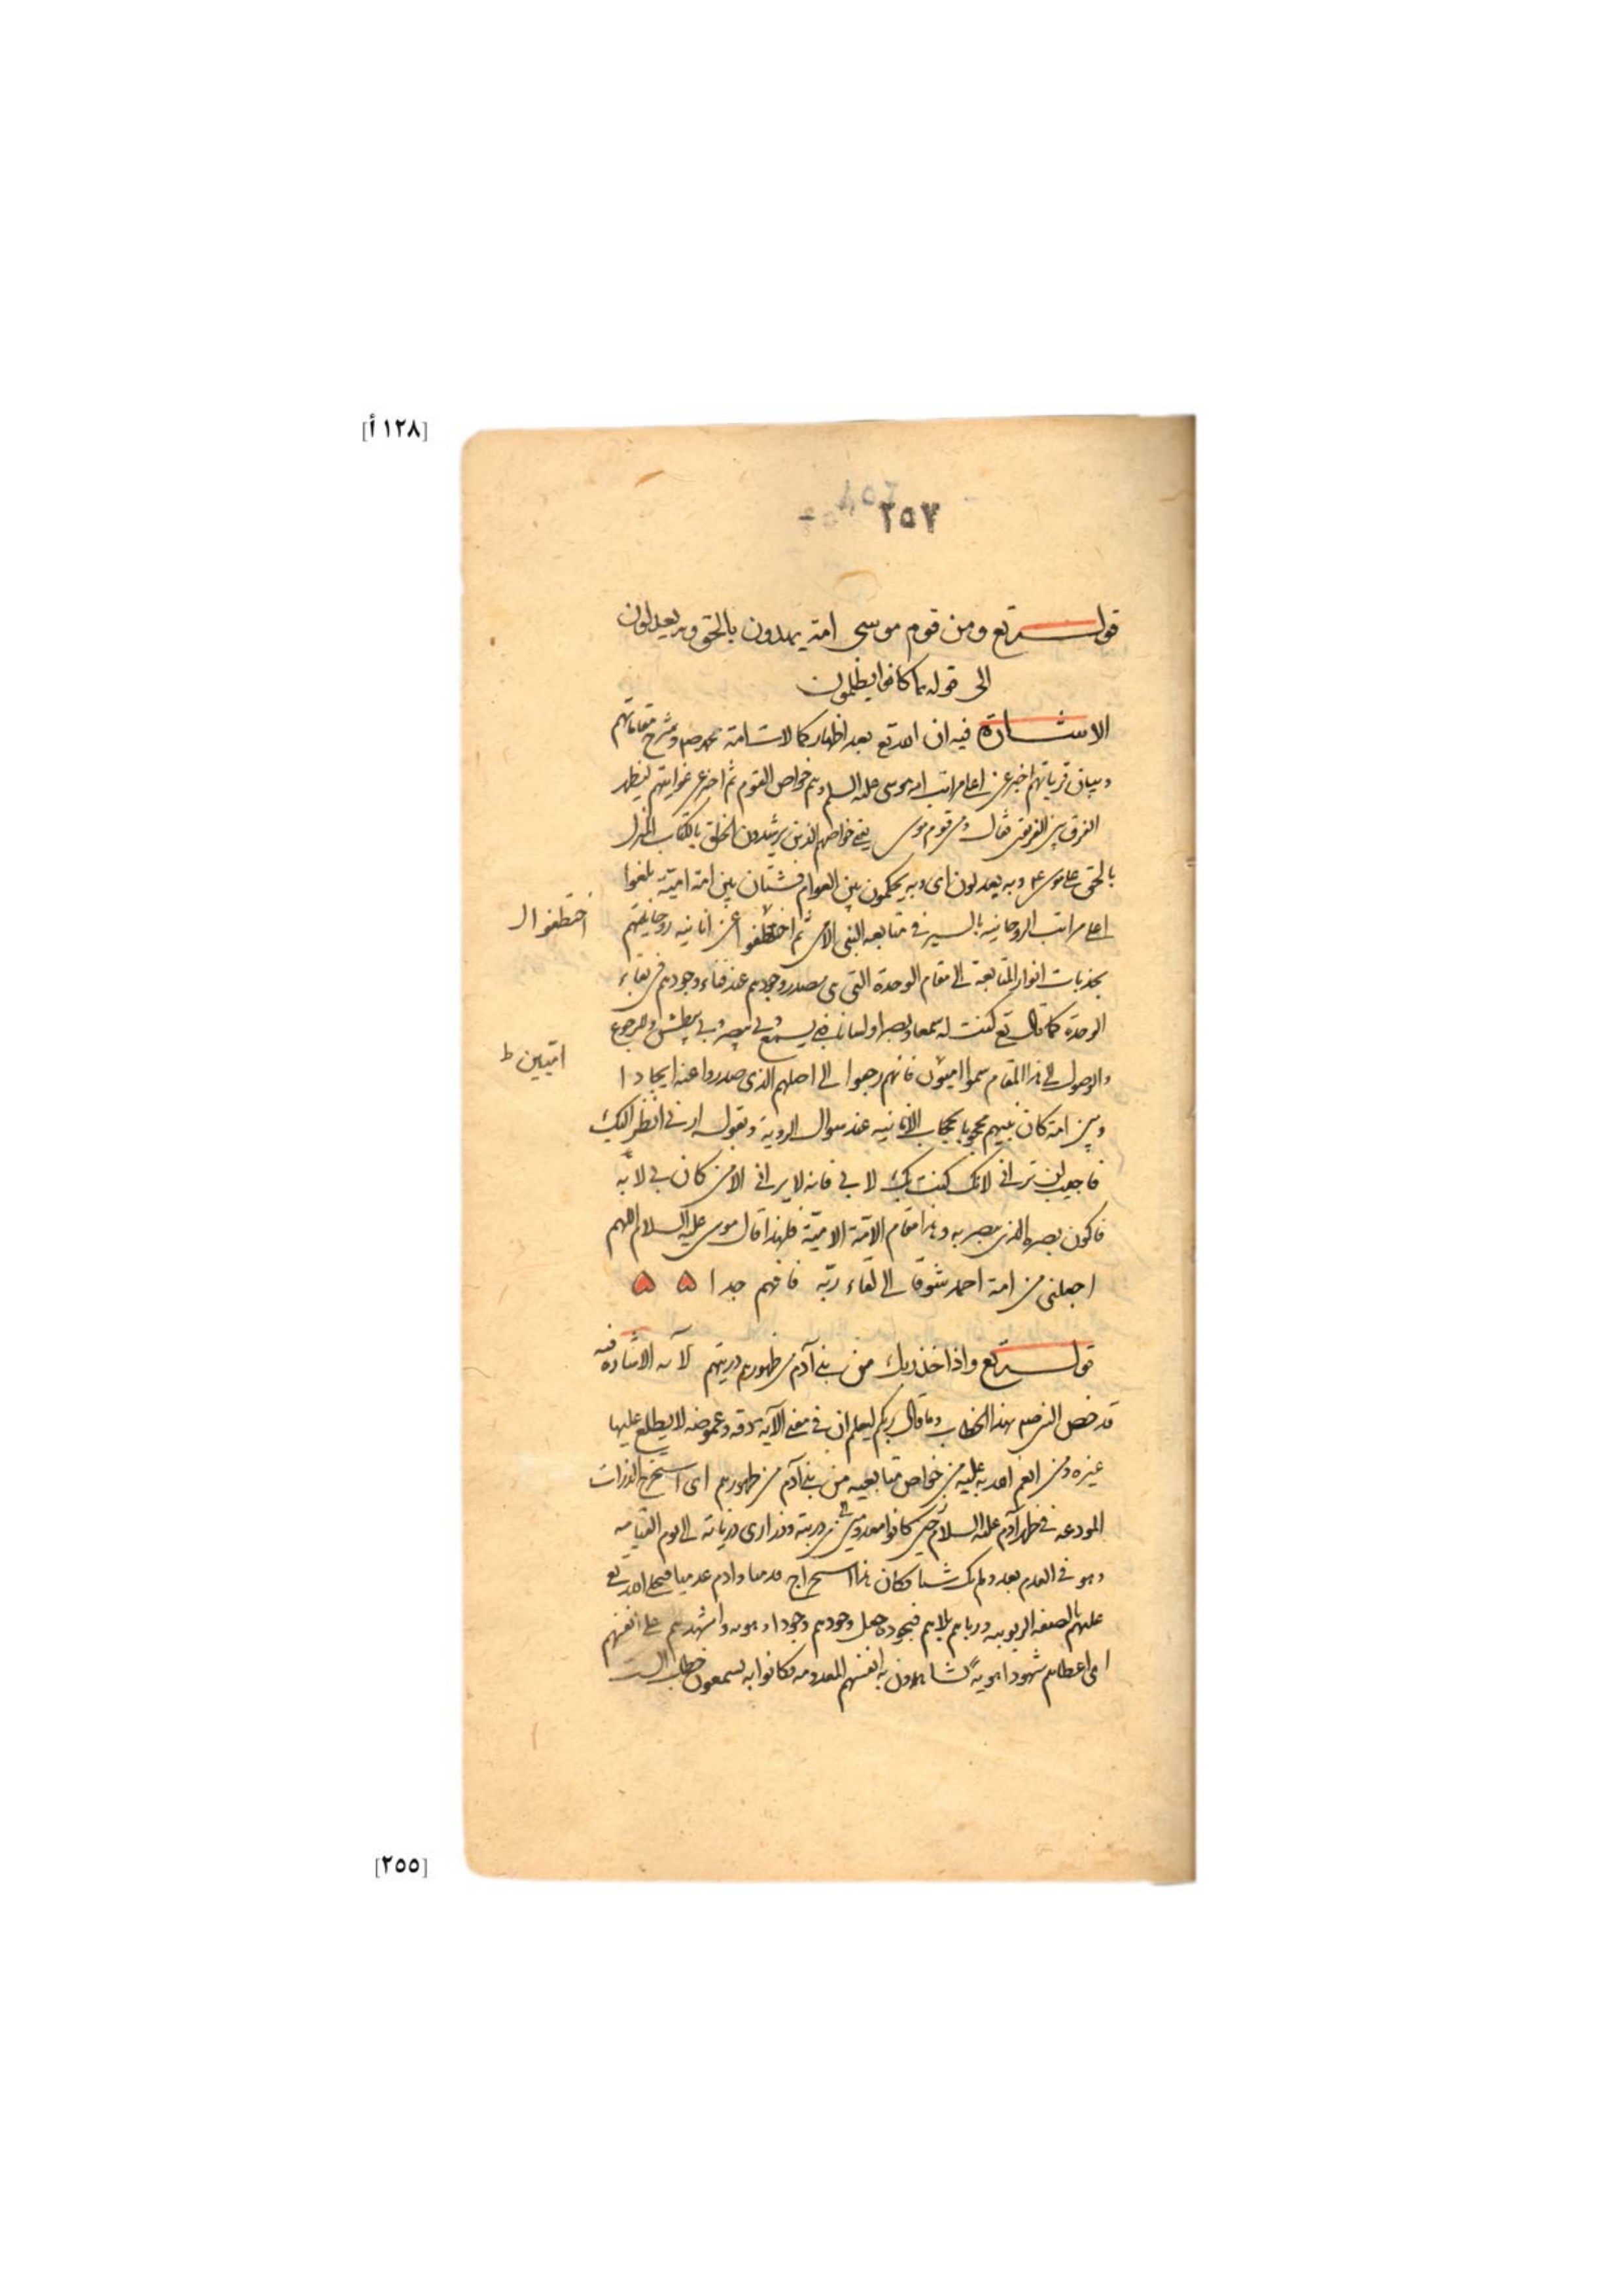 [١٢٨ أ]
٢٥٧
قولـــه تع ومن قوم موسى امة يهدون بالحق وبه يعدلون
الى قوله بما كانوا يظلمون
الاشـــارة فيه ان الله تع بعد اظهار كمالات امة محمد صم وشرح مقاماتهم
وبيان قرباتهم اخبر عن اعلى مراتب امة موسى عليه السلم وهم خواص القوم ثم اخبر عن غوايتهم ليظهر
الفرق بين الفريقين فقال ومن قوم موسى يعنى خواصهم الذين يرشدون الخلق بالكتاب المنزل
بالحق على موسى ء وبه يعدلون اى وبه يحكمون بين العوام فشتان بين امة امية بلغوا
اعلى مراتب الروحانية بالسير فى متابعة النبى الامى ثم اختطفوا عن انانية روحانيتهم
اختطفوا ل
بجذبات انوار المتابعة الى مقام الوحدة التى هى مصدر وجودهم عند فناء وجودهم فى بقاء
الوحدة كما قال تع كنت له سمعا وبصرا ولسانا فبى يسمع وبى يبصر وبى يبطش وبالرجوع
والوصول الى هذا المقام سموا اميون فانهم رجعوا الى اصلهم الذى صدروا عنه ايجادا
اميين ط
وبين امة كان نبيهم محجوبا بحجاب الانانية عند سوال الروية وبقوله ارنى انظر اليك
فاجيب لن ترانى لانك كنت بك لا بى فانه لا يرانى الا من كان بى لا به
فاكون بصره الذى يبصر به وهذا مقام الامة الامية فلهذا قال موسى عليه السلام اللهم
اجعلنى من امة احمد شوقا الى لقاء ربه فافهم جدا ۵ ۵
قولـــه تع واذا خذ ربك من بنى آدم من ظهورهم ذريتهم الآيه الاشارة فيه
قد خص النبى صم بهذا الخطاب وما قال ربكم ليعلم ان فى معنى الآية دقة وغموضه لا يطلع عليها
غيره ومن انعم الله به عليه من خواص متابعيه من بنى آدم من ظهورهم اى استخرج الذرات
المودعة فى ظهر آدم عليه السلام حين كانوا معدومين من ذريته وذرارى ذرياته الى يوم القيامة
وهو فى العدم بعد ولم يك شيا فكان هذا استخراج عدميا وادم عدميا فتجلى الله تع
عليهم بالصفة الربوبية ورباهم بلاهم فبجوده جعل وجودهم وجودا وهويه واشهدهم على انفسهم
اى اعطاهم شهودا هوية يشاهدون به انفسهم المعدومة فكانوا به يسمعون خطاب الست
[٢٥٥]